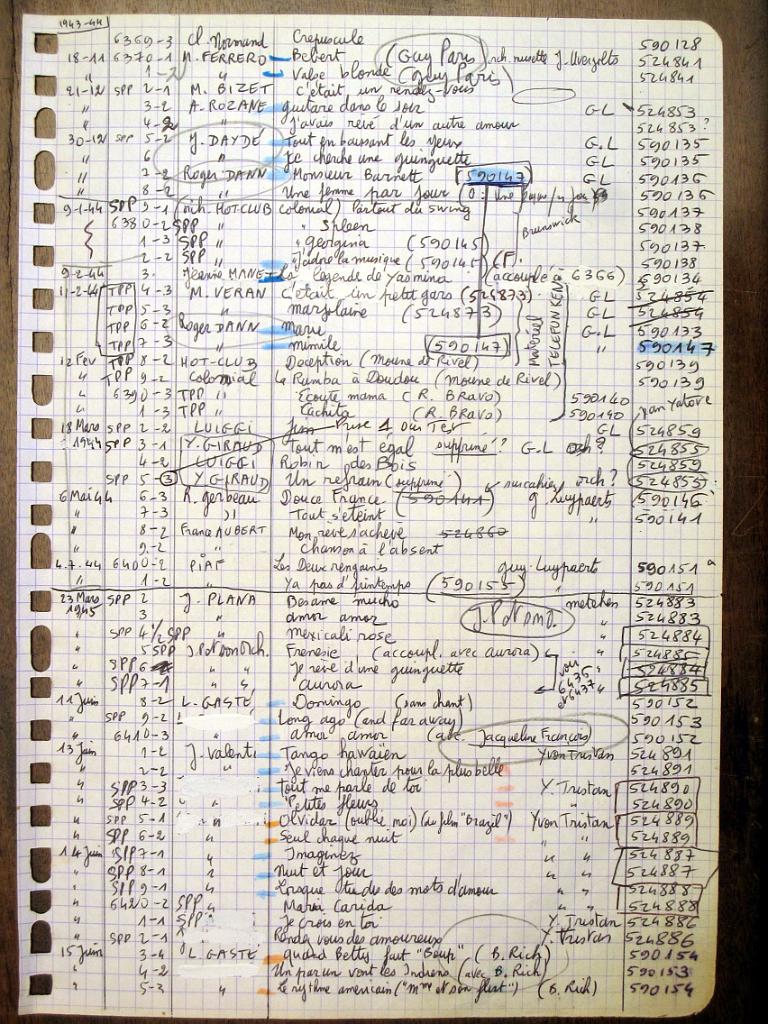 1943-44
6369-3 Cl. Normand Crepuscule 590128
18-11 6370-1 M. FERRERO Bebert (Guy Paris) orch. musette J. 524841
" 1-2 " Valse blonde (Guy Paris) 524841
21-12 SPP 2-1 M. BIZET C'était un rendez-vous
" 3-2 A. ROZANE guitare dans le soir GL 524853
" 4-2 " J'avais rêvé d'un autre amour 524853 ?
30-12 SPP 5-2 J. DAYDÉ Tout en baissant les yeux G.L 590135
" 6 " Je cherche une guinguette GL 590135
" 7-2 Roger DANN Monsieur Barnett (590147) GL 590136
" 8-2 " Une femme par jour 590136
9-1-44 SPP 9-1 (orch. HOT-CLUB Colonial) Partout du swing 590137
6380-2 SPP " " Spleen Brunswick 590138
1-3 SPP " " Georgina (590145) 590137
2-2 SPP " " J'adore la musique (590145) (F. 590138
9-2-44 3. Jeanne MANET La légende de Yasmina (accouplé à 6366) 590134
11-2-44 TPP 4-3 M. VERAN C'était un petit gars (524873) GL 524854
TPP 5-3 " marjolaine (524873) GL 524854
TPP 6-2 Roger DANN Marie G.L 590133
TPP 7-3 " mimile (590147) " 590147
Matériel TELEFUNKEN
12 Fev TPP 8-2 HOT-CLUB Deception (Moune de Rivel) 590139
" TPP 9-2 Colonial La Rumba à Doudou (Moune de Rivel) 590139
" 6390-3 TPP " Ecoute mama (R. BRAVO) 590140
" 1-3 TPP " Cachita (R. BRAVO) 590140
18 Mars SPP 2-2 LUIGGI GL 524859
1944 SPP 3-1 Y. GIRAUD Tout m'est égal supprimé ? G.L orch ? 524855
4-2 LUIGGI Robin des Bois 524859
SPP 5-3 Y. GIRAUD Un refrain (supprimé) sur cahier orch ? 524855
6 Mai 44 6-3 R. gerbeau Douce France (590141) g. Luypaerts 590146 ?
" 7-3 " Tout s'eteint " 590141
" 8-2 France AUBERT Mon rêve s'achève 524860
" 9-2 " Chanson à l'absent
4.7.44 6400-2 PIAF Les Deux rengaines guy Luypaerts 590151
" 1-2 " Ya pas d'printemps (590155) " 590151
23 Mars SPP 2 J. PLANA Besame mucho metehen 524883
1945 3 " amor amor J. Patومnd 524883
" SPP 4 1/2 SPP " mexicali rose " 524884
" 5 SPP Frenesie (accoupl. avec aurora) 524885
" SPP 6 " Je rêvé d'une guinguette voir 6436 et 6437 524884
" SPP 7-1 " aurora 524885
11 Juin 8-2 L. GASTÉ Domingo (sans chant) 590152
" SPP 9-2 Long ago (and far away) 590153
" 6410-3 amor amor (avec Jacqueline François) 590152
13 Juin 1-2 J. Valenti Tango hawaïen Yvon Tristan 524891
" 2-2 " Je viens chanter pour la plus belle 524891
" SPP 3-3 Tout me parle de toi Y. Tristan 524890
" SPP 4-2 " Petites fleurs " 524890
" SPP 5-1 Olvidar (oublie moi) (du film "Brazil") Yvon Tristan 524889
" SPP 6-2 " Seul chaque nuit " 524889
14 Juin SPP 7-1 " Imaginez " " 524887
" SPP 8-1 " Nuit et jour " " 524887
" SPP 9-1 " Lorsque tu dis des mots d'amour " " 524888
" 6420-2 SPP " Maria Carida " " 524888
" 1-1 SPP " Je crois en toi Y. Tristan 524886
" SPP 2-1 Rendez vous des amoureux Y. Tristan 524886
15 Juin 3-4 L. GASTÉ quand Betty fait "Boup" (B. Rich) 590154
" 4-2 Un par un vont les Indiens (avec B. Rich) 590153
" 5-3 " Le rythme americain ("Mme et son flirt") (B. Rich) 590154